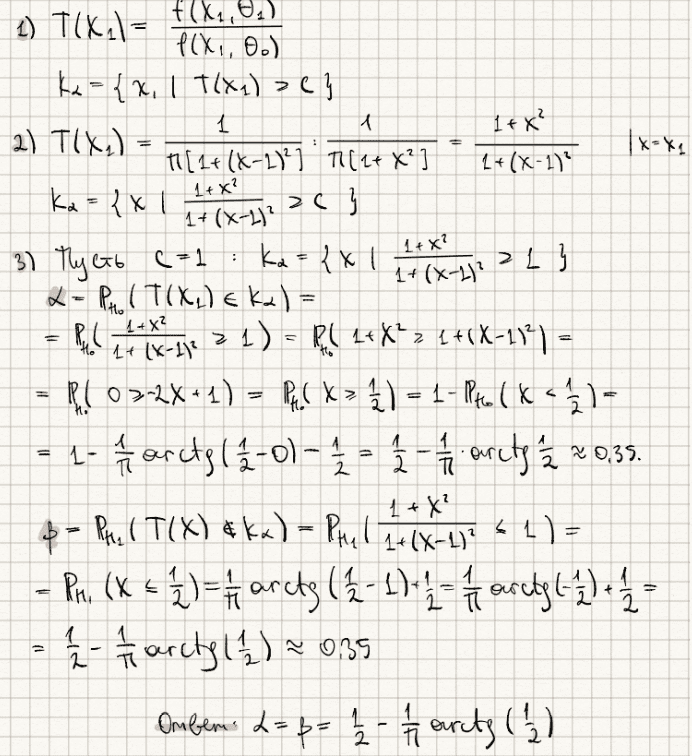 1) T(X₁) = f(X₁, Θ₁) / f(X₁, Θ₀)
K_α = { x₁ | T(x₁) ≥ c }
2) T(X₁) = 1 / π[1+(x-1)²] : 1 / π[1+x²] = (1+x²) / (1+(x-1)²) | x=x₁
K_α = { x | (1+x²) / (1+(x-1)²) ≥ c }
3) Пусть c=1 : K_α = { x | (1+x²) / (1+(x-1)²) ≥ 1 }
α = P_H₀( T(X₁) ∈ K_α) =
= P_H₀( (1+x²) / (1+(x-1)²) ≥ 1 ) = P_H₀( 1+x² ≥ 1+(x-1)²) =
= P_H₀( 0 ≥ -2x+1) = P_H₀( x ≥ 1/2) = 1 - P_H₀( x < 1/2) =
= 1 - 1/π arctg(1/2 - 0) - 1/2 = 1/2 - 1/π · arctg 1/2 ≈ 0,35.
β = P_H₁( T(X) ∉ K_α) = P_H₁( (1+x²) / (1+(x-1)²) ≤ 1 ) =
= P_H₁ (x ≤ 1/2) = 1/π arctg (1/2 - 1) + 1/2 = 1/π arctg(-1/2) + 1/2 =
= 1/2 - 1/π arctg(1/2) ≈ 0,35
Ответ: α = β = 1/2 - 1/π arctg (1/2)